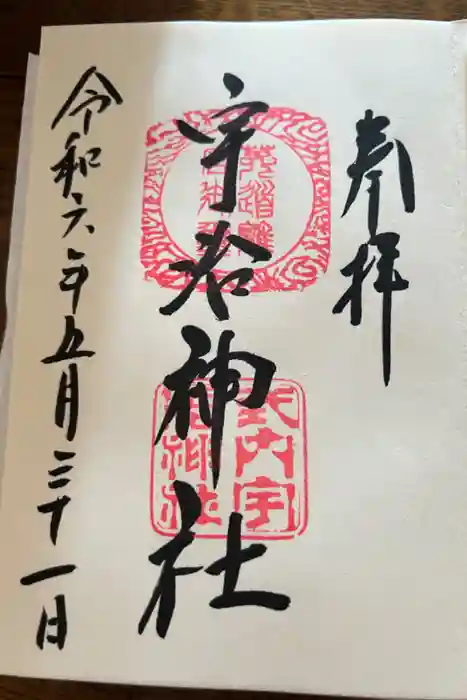 奉拝
宇治神社
式内宇治神社
令和六年五月三十一日